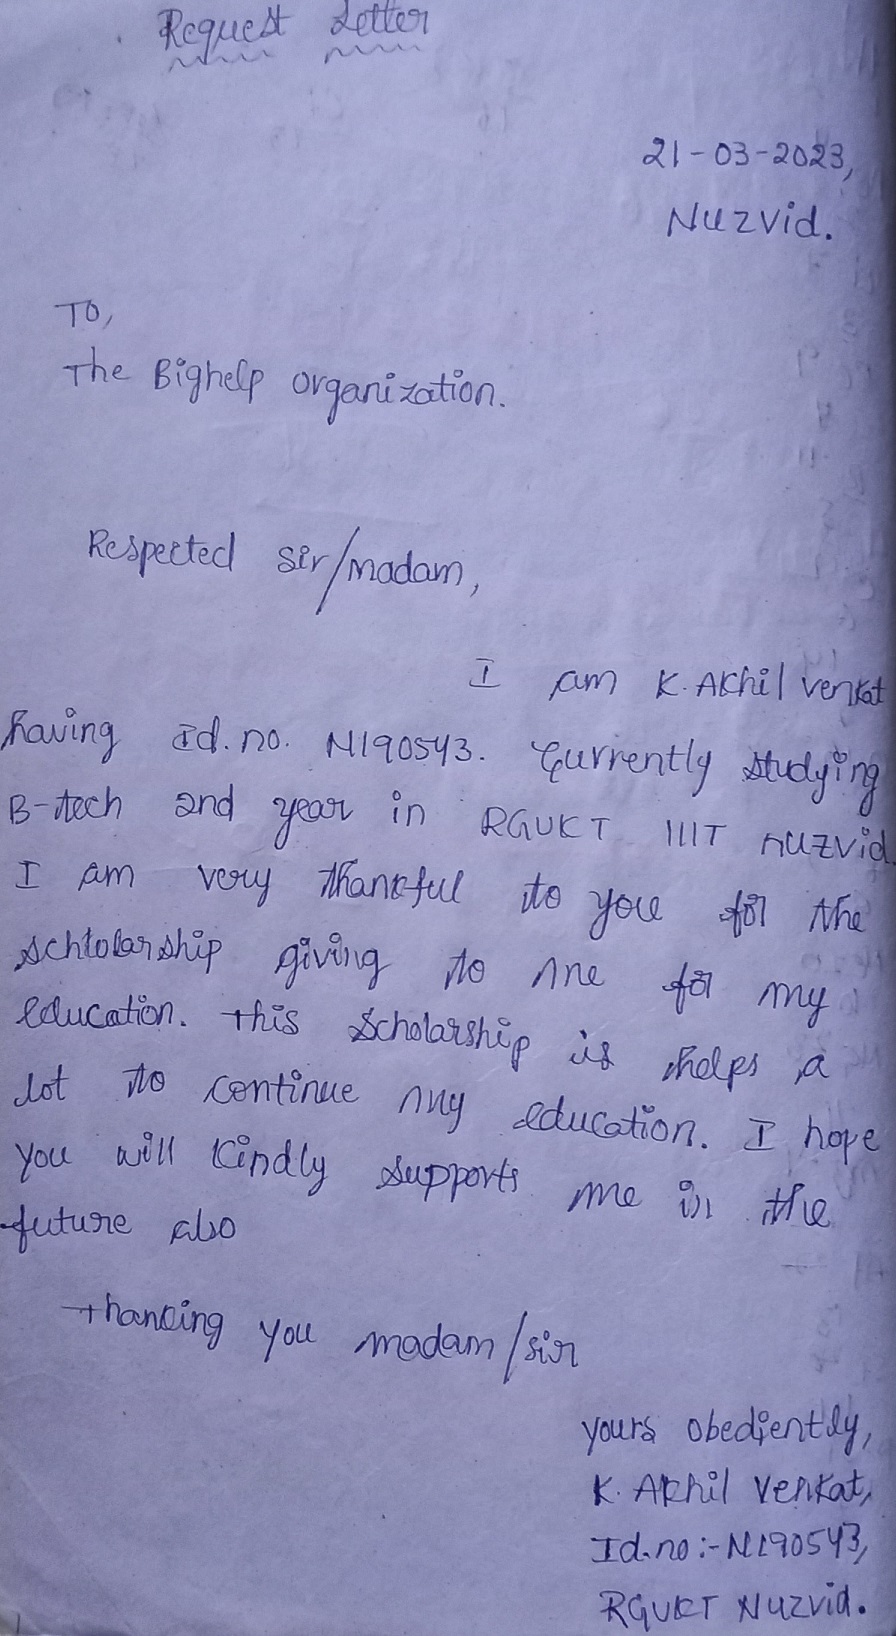 Request Letter
21-03-2023,
Nuzvid.
To,
The Bighelp organization.
Respected sir/madam,
I am K. Akhil venkat
having Id. no. N190543. Currently studying
B-tech 2nd year in RGUKT IIIT nuzvid.
I am very thankful to you for the
schtolarship giving to me for my
education. this scholarship is helps a
lot to continue my education. I hope
you will kindly supports me in the
future also
thanking you madam/sir
yours obediently,
K. Akhil Venkat,
Id.no:-N190543,
RGUKT Nuzvid.